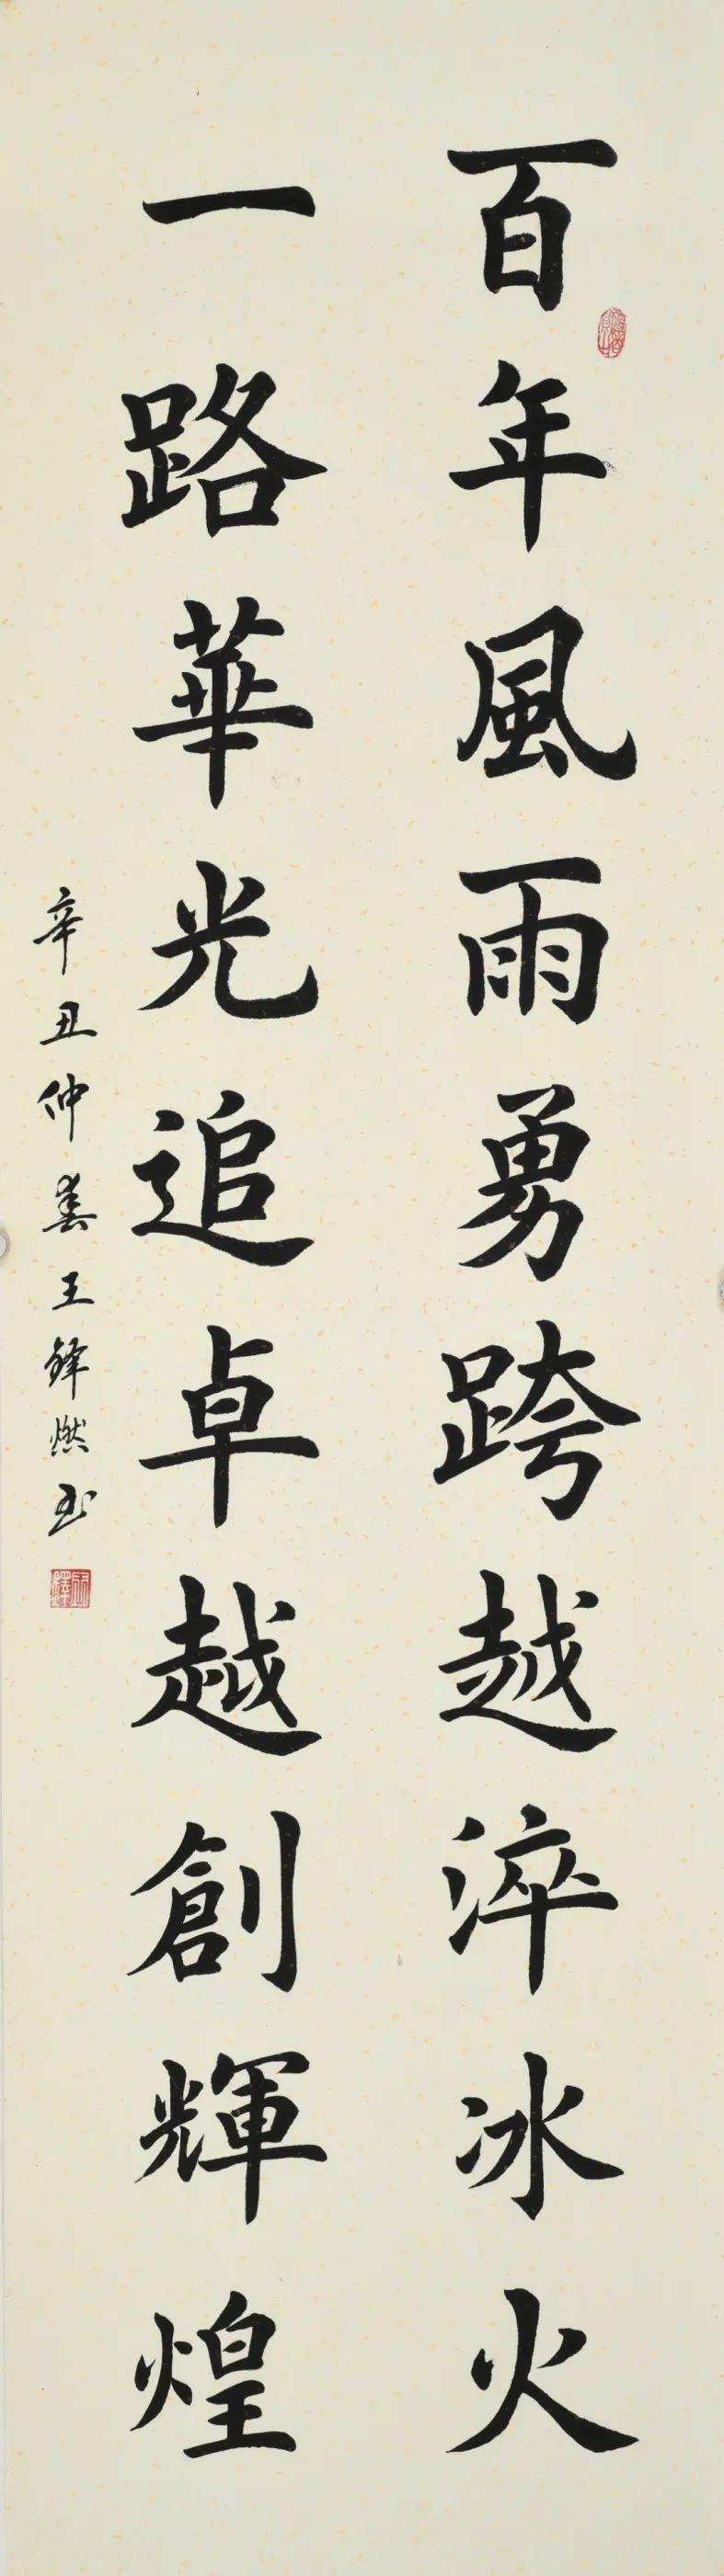 百年風雨勇跨越淬冰火
一路華光追卓越創輝煌
辛丑仲春王鋒燃书